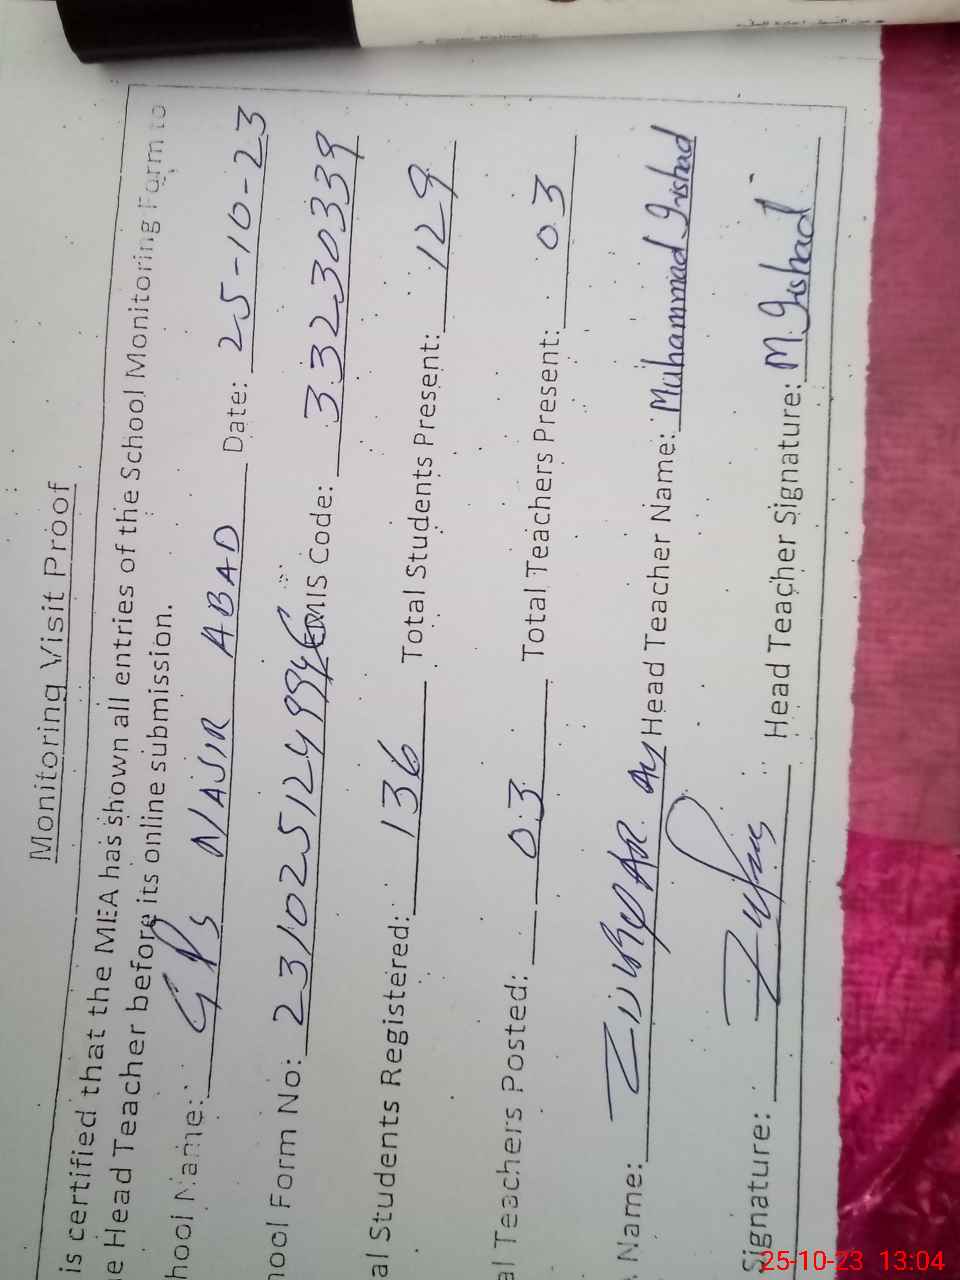 Monitoring Visit Proof
is certified that the MEA has shown all entries of the School Monitoring Form to
e Head Teacher before its online submission.
hool Name: GPS NASIR ABAD Date: 25-10-23
hool Form No: 231025124994 EMIS Code: 33230339
al Students Registered: 136 Total Students Present: 129
al Teachers Posted: 03 Total Teachers Present: 03
Name: Head Teacher Name: Muhammad Irshad
Signature: Head Teacher Signature: M. Irshad
25-10-23 13:04